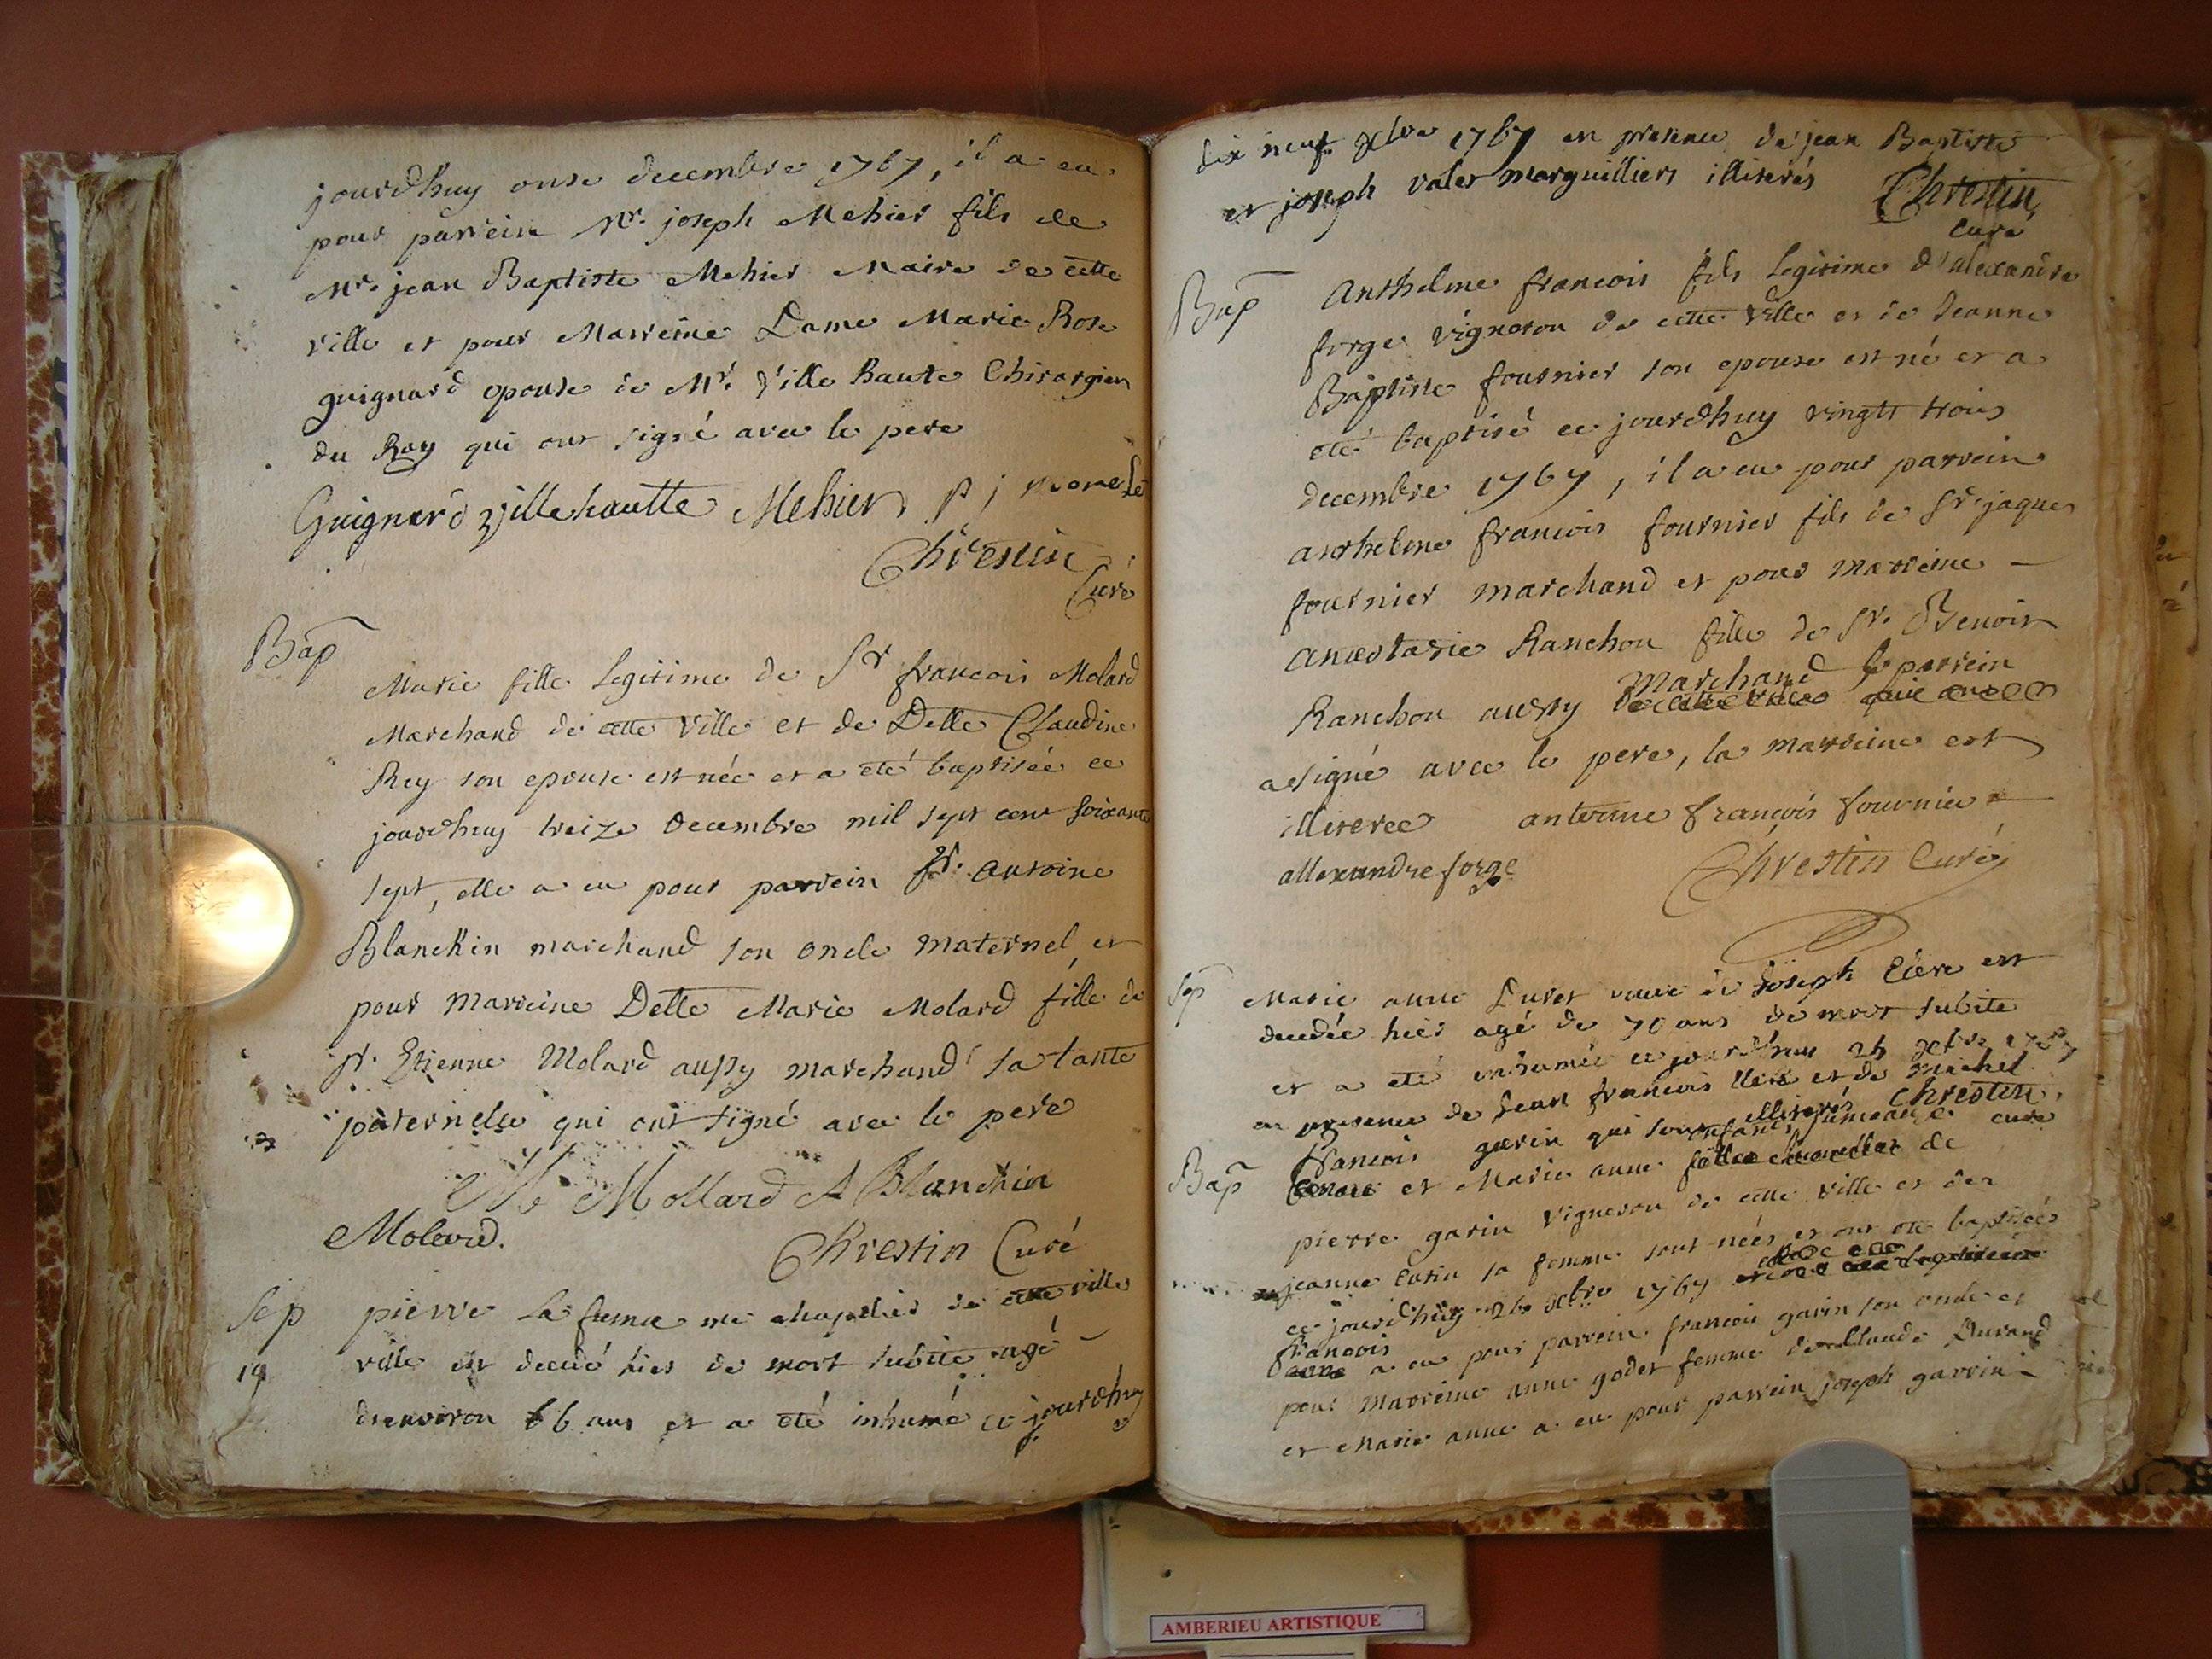 jourdhuy onse decembre 1767, il a eu
pour parrein Mr. joseph Mehier fils de
Mr. jean Baptiste Mehier Maire de cette
ville et pour Marreine Dame Marie Rose
guignard epouse de Mr. Ville haute Chirurgien
du Roy qui ont signé avec le pere
Guignard villehautte Mehier
Chrestin
Curé
Bap
Marie fille legitime de Sr francois Molard
Marchand de cette Ville et de Delle Claudine
Rey son epouse est née et a eté baptisée ce
jourdhuy treize decembre mil sept cent soixante
sept, elle a eu pour parrein Sr. antoine
Blanchin marchand son oncle maternel, et
pour marreine Delle Marie Molard fille de
Sr. Etienne Molard aussy marchand sa tante
paternelle qui ont signé avec le pere
M Mollard A Blanchin
Molard.
Chrestin Curé
Sep pierre la fuma me chapelier de cette ville
19 ville est decedé hier de mort subite agé
denviron 66 ans et a eté inhumé ce jourdhuy
dix neuf xbre 1767 en presence de jean Baptiste
et joseph valet marguilliers illiterés Chrestin
Curé
Bap Anthelme francois fils legitime d'alexandre
forge vigneron de cette ville et de Jeanne
Baptiste fournier son epouse est né et a
eté baptisé ce jourdhuy vingt trois
decembre 1767, il a eu pour parrein
anthelme francois fournier fils de Sr. jaques
fournier marchand et pour marreine
anastasie Ranchon fille de Sr. Benoit
Marchand le parrein
Ranchon aussy
a signé avec le pere, la marreine est
illiteree anterme françois fournier
allexandre forge Chrestin Curé
Sep Marie anne Duret veuve de Joseph est
decedée hier agé de 70 ans de mort subite
et a eté inhumée ce jourdhuy 26 xbre 1767
en presence de Jean francois et de michel
francois garin qui sont illiterés Chrestin
enfants jumeaux curé
Bap et Marie anne de
pierre garin vigneron de cette ville et de
jeanne sa femme sont nées et ont eté baptisées
ce jourdhuy 26 xbre 1767
francois
a eu pour parrein francois garin son oncle et
pour marreine anne godet femme de claude Durand
et Marie anne a eu pour parrein joseph garrin
AMBERIEU ARTISTIQUE